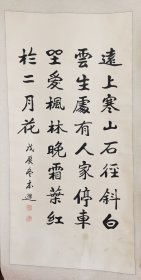 遠上寒山石徑斜白
雲生處有人家停車
坐愛楓林晚霜葉紅
於二月花
戊辰冬